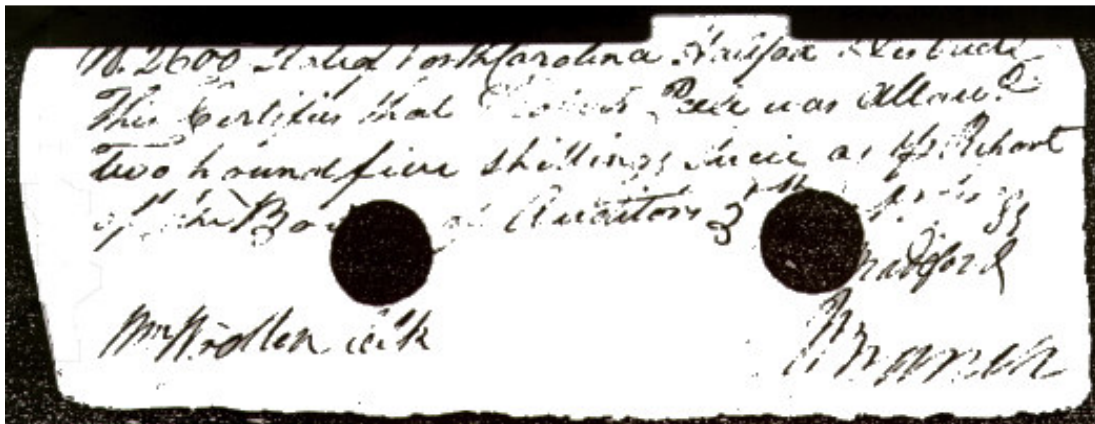 N. 2600 State of North Carolina Halifax District
This Certifies that Pair was Allow.d
two pound five shillings Specie as pr Report
of the Bo of Auditors 3 83
Bradford
Wm Wootten Clk Branch